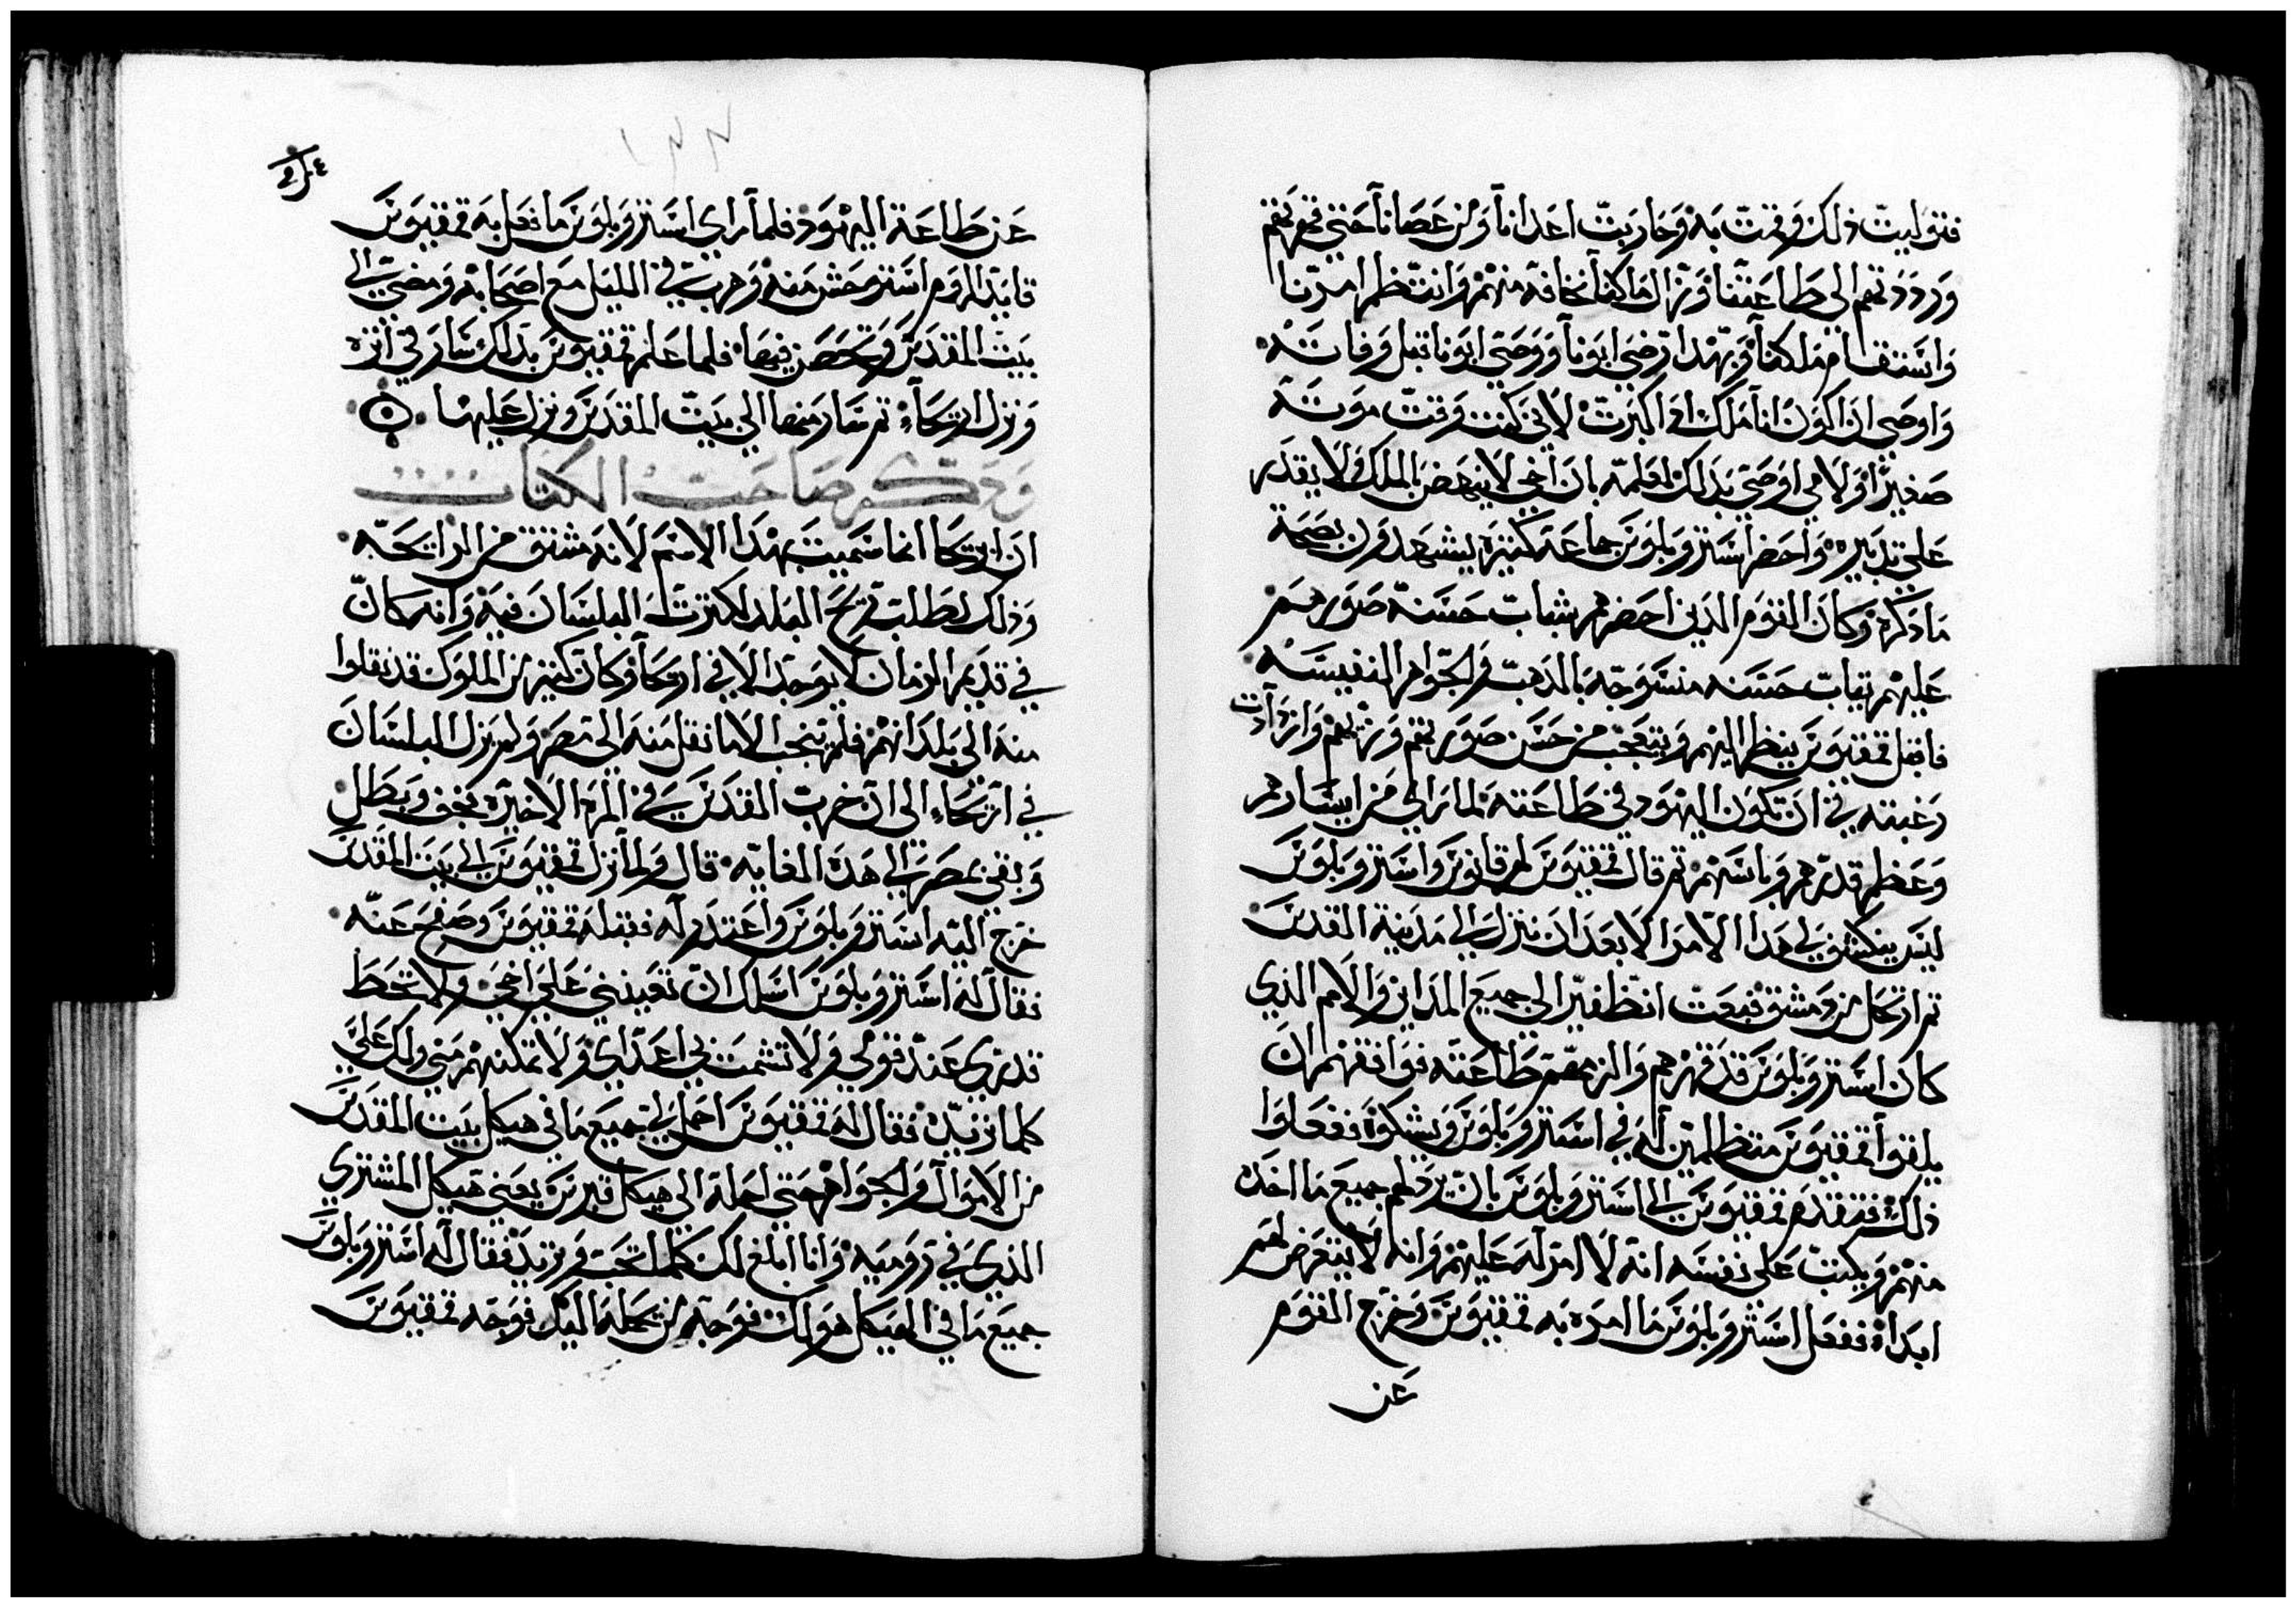 فتوليت ذلك وقمت به وحاربت اعدانا ومن عصانا حتي قهرتهم
ورددتهم الي طاعتنا وزال ما كنا نخافه منهم وانتظم امرنا
واستقام ملكنا وبهذا رضي ابونا ووصي ابونا قبل وفاته
واوصي ان اكون انا ملك اذا كبرت لاني كنت وقت موته
صغيرا ولامي اوصي بذلك لعلمه بان اخي لا ينهض بالملك ولا يقدر
علي تدبيره واحضر استروبلوس جماعة كثيرة ليشهدون بصحة
ما ذكره وكان القوم الذين احضرهم شباب حسنة صورهم
عليهم تياب حسنه منسوجه بالدهب والجواهر النفيسه
فاقبل قمقيوس ينظر اليهم ويتعجب من حسن صورتهم وزيهم وازدادت
رغبته في ان تكون اليهود في طاعته لما راي من ايسارهم
وعظم قدرهم وباسهم تم قال قمقيوس لهرقانوس واستروبلوس
ليس ينكشف لي هدا الامر الا بعد ان ننزل الي مدينة القدس
تم ارتحل من دمشق فبعت انطفير الي جميع المداين والامم الذي
كان استروبلوس قد قهرهم والزمهم طاعته فوافقهم ان
يلقوا قمقيوس متظلمين له في استروبلوس ويشكوه ففعلوا
ذلك فتقدم قمقيوس الي استروبلوس بان يرد لهم جميع ما اخده
منهم ويكتب علي نفسه انه لا امر له عليهم وانه لا يتعرض لهم
ابدا ففعل استروبلوس ما امره به قمقيوس وخرج القوم
عن
عن طاعة اليهود فلما راي استروبلوس ما فعل به قمقيوس
قايد الروم استوحش منه وهرب في الليل مع اصحابه ومضي الي
بيت المقدس وتحصن فيها فلما علم قمقيوس بدلك سار في اتره
ونزل اريحاء تم سار منها الي بيت المقدس ونزل عليها
وذكر صاحب الكتاب
ان اريحا انما سميت بهدا الاسم لانه مشتق من الرايحه
وذلك لطلب ريح البلد لكترة البلسان فيه وانه كان
في قديم الزمان لا يوجد الا في اريحا وكان كثير من الملوك قد نقلوا
منه الي بلدانهم فلم ينجب الا ما نقل منه الي مصر ولم يزل البلسان
في اريحاء الي ان خربت القدس في المرة الاخيره فجف وبطل
وبقي بمصر الي هده الغايه قال ولما نزل قمقيوس الي بيت المقدس
خرج اليه استروبلوس واعتدر له فقبله قمقيوس وصفح عنه
فقال له استروبلوس اسلك ان تعينني علي اخي ولا تحط
قدري عند قومي ولا تشمت بي اعداي ولا تمكنهم مني ولك علي
كلما تريد فقال له قمقيوس احمل لي جميع ما في هيكل بيت المقدس
من الاموال والجواهر حتي احملة الي هيكل قبرس يعني هيكل المشتري
الذي في روميه وانا ابلغ لك كلما تحب وتريد فقال له استروبلوس
جميع ما في الهيكل هو لك فوجه من يحمله اليك فوجه قمقيوس